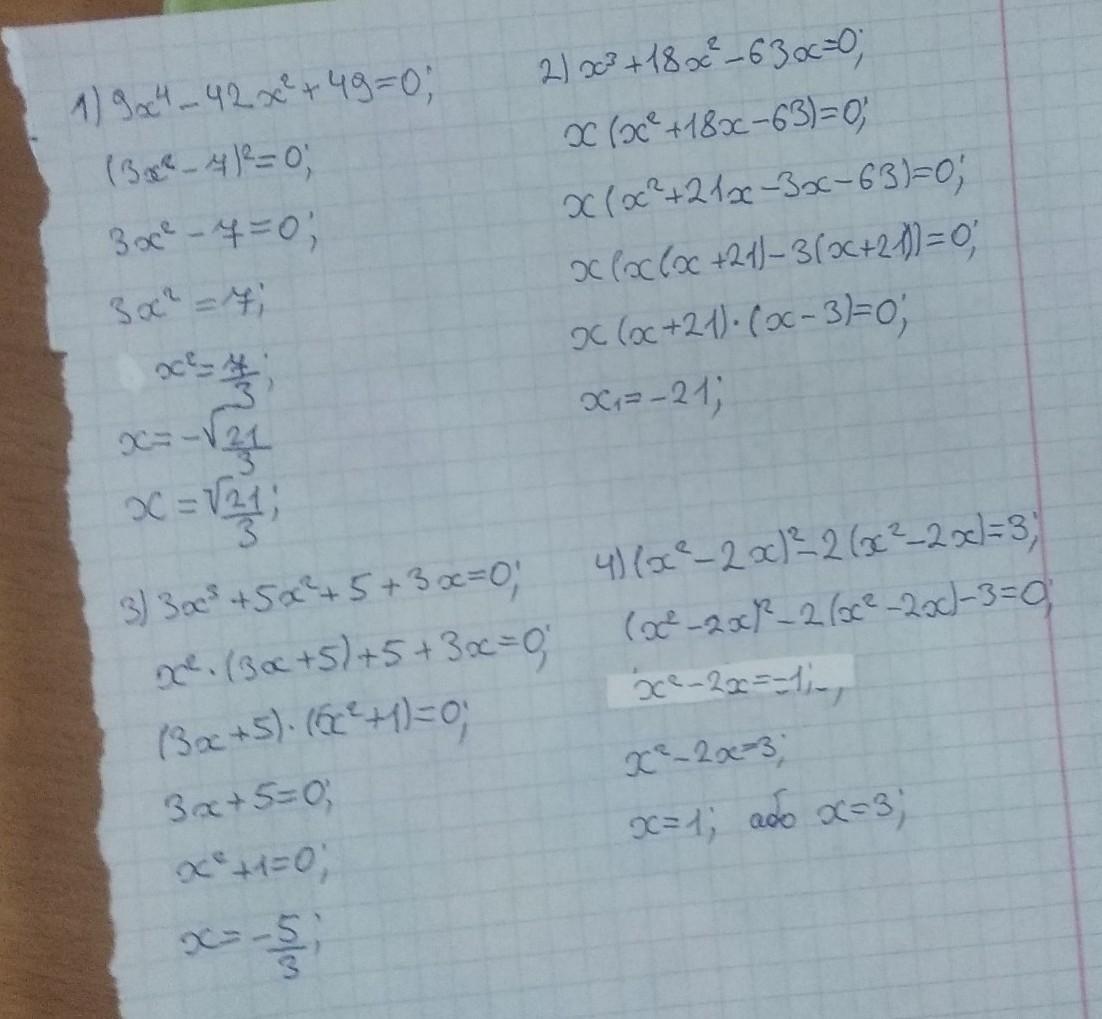 1) 9x⁴ - 42x² + 49 = 0;
(3x² - 7)² = 0;
3x² - 7 = 0;
3x² = 7;
x² = 7/3;
x = -√21/3
x = √21/3;
2) x³ + 18x² - 63x = 0;
x(x² + 18x - 63) = 0;
x(x² + 21x - 3x - 63) = 0;
x(x(x + 21) - 3(x + 21)) = 0;
x(x + 21)·(x - 3) = 0;
x₁ = -21;
3) 3x³ + 5x² + 5 + 3x = 0;
x²·(3x + 5) + 5 + 3x = 0;
(3x + 5)·(x² + 1) = 0;
3x + 5 = 0;
x² + 1 = 0;
x = -5/3;
4) (x² - 2x)² - 2(x² - 2x) = 3;
(x² - 2x)² - 2(x² - 2x) - 3 = 0;
x² - 2x = -1;
x² - 2x = 3;
x = 1; або x = 3;